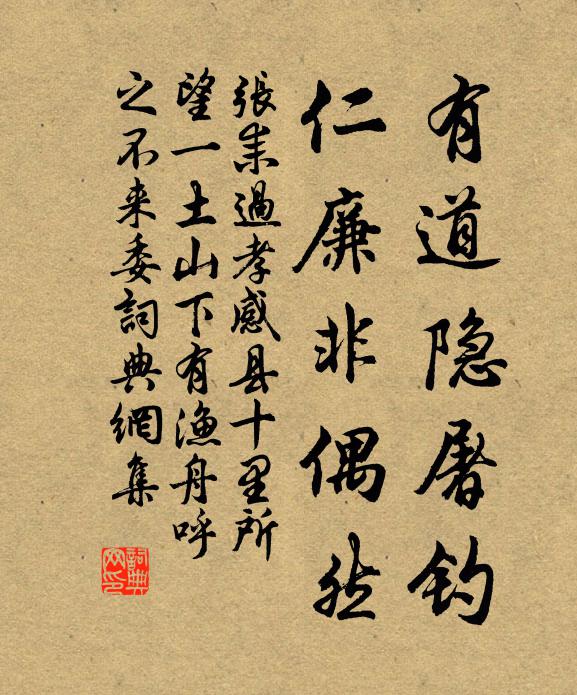 有道隐屠钓
仁廉非偶然
張耒過孝感县十里所
望一土山下有漁舟呼
之不来委詞典網集
詞典
网印